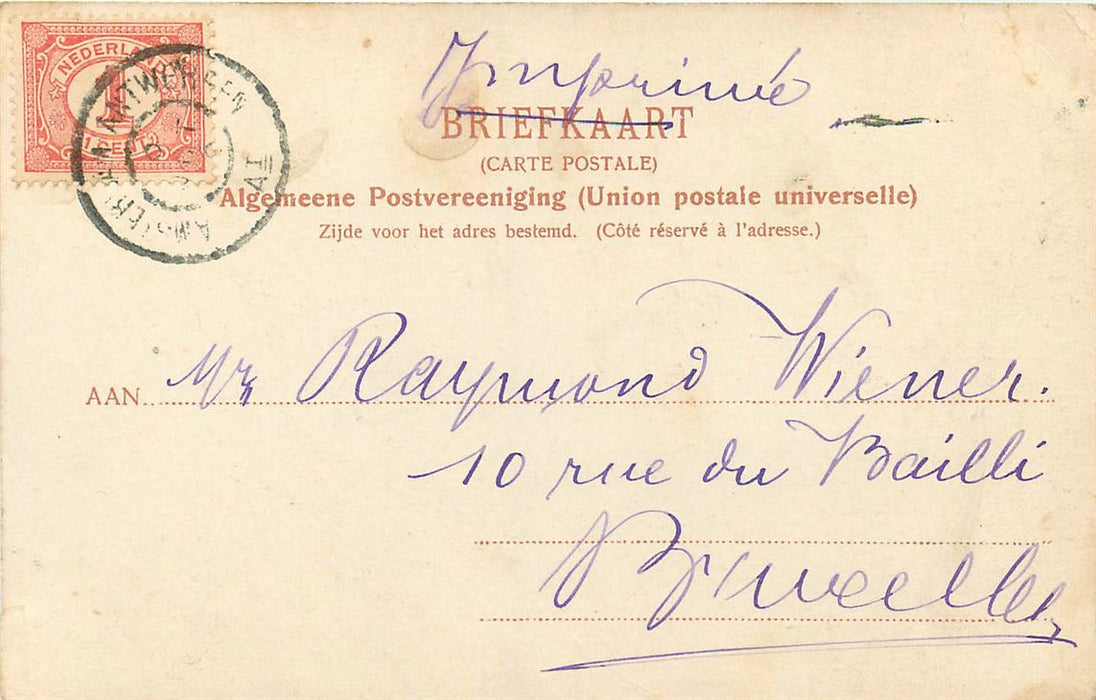 NEDERLAND
1
1 CENT
AMSTERDAM ANTWERPEN
AI
Imprimé
BRIEFKAART
(CARTE POSTALE)
Algemeene Postvereeniging (Union postale universelle)
Zijde voor het adres bestemd. (Côté réservé à l'adresse.)
AAN Mr Raymond Wiener.
10 rue du Bailli
Bruxelles